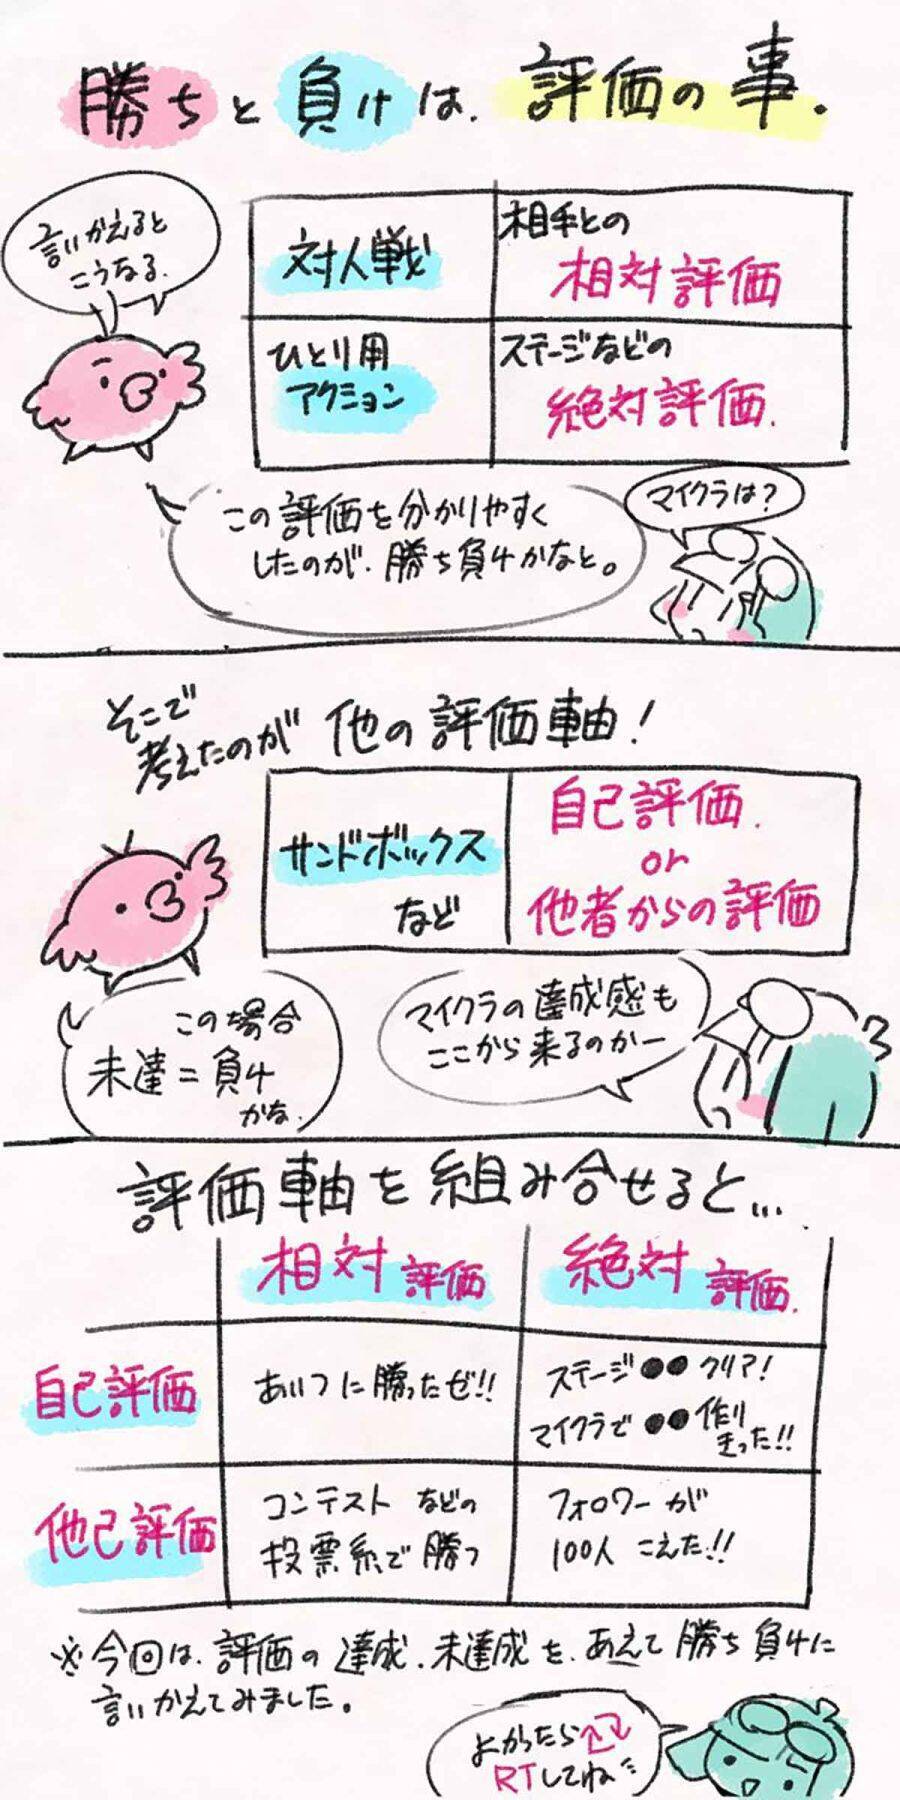 勝ちと負けは、評価の事。
言いかえると
こうなる。
対人戦
相手との
相対評価
ひとり用
アクション
ステージなどの
絶対評価.
この評価を分かりやすく
したのが、勝ち負けかなと。
マイクラは?
そこで
考えたのが 他の評価軸!
サンドボックス
など
自己評価.
or
他者からの評価
この場合
未達=負け
かな.
マイクラの達成感も
ここから来るのかー
評価軸を組み合せると...
相対評価
絶対評価.
自己評価
あいつに勝ったぜ!!
ステージ●●クリア!
マイクラで●●作り
きった!!
他己評価
コンテストなどの
投票系で勝つ
フォロワーが
100人こえた!!
※今回は、評価の達成、未達成を、あえて勝ち負けに
言いかえてみました。
よかったら
RTしてね